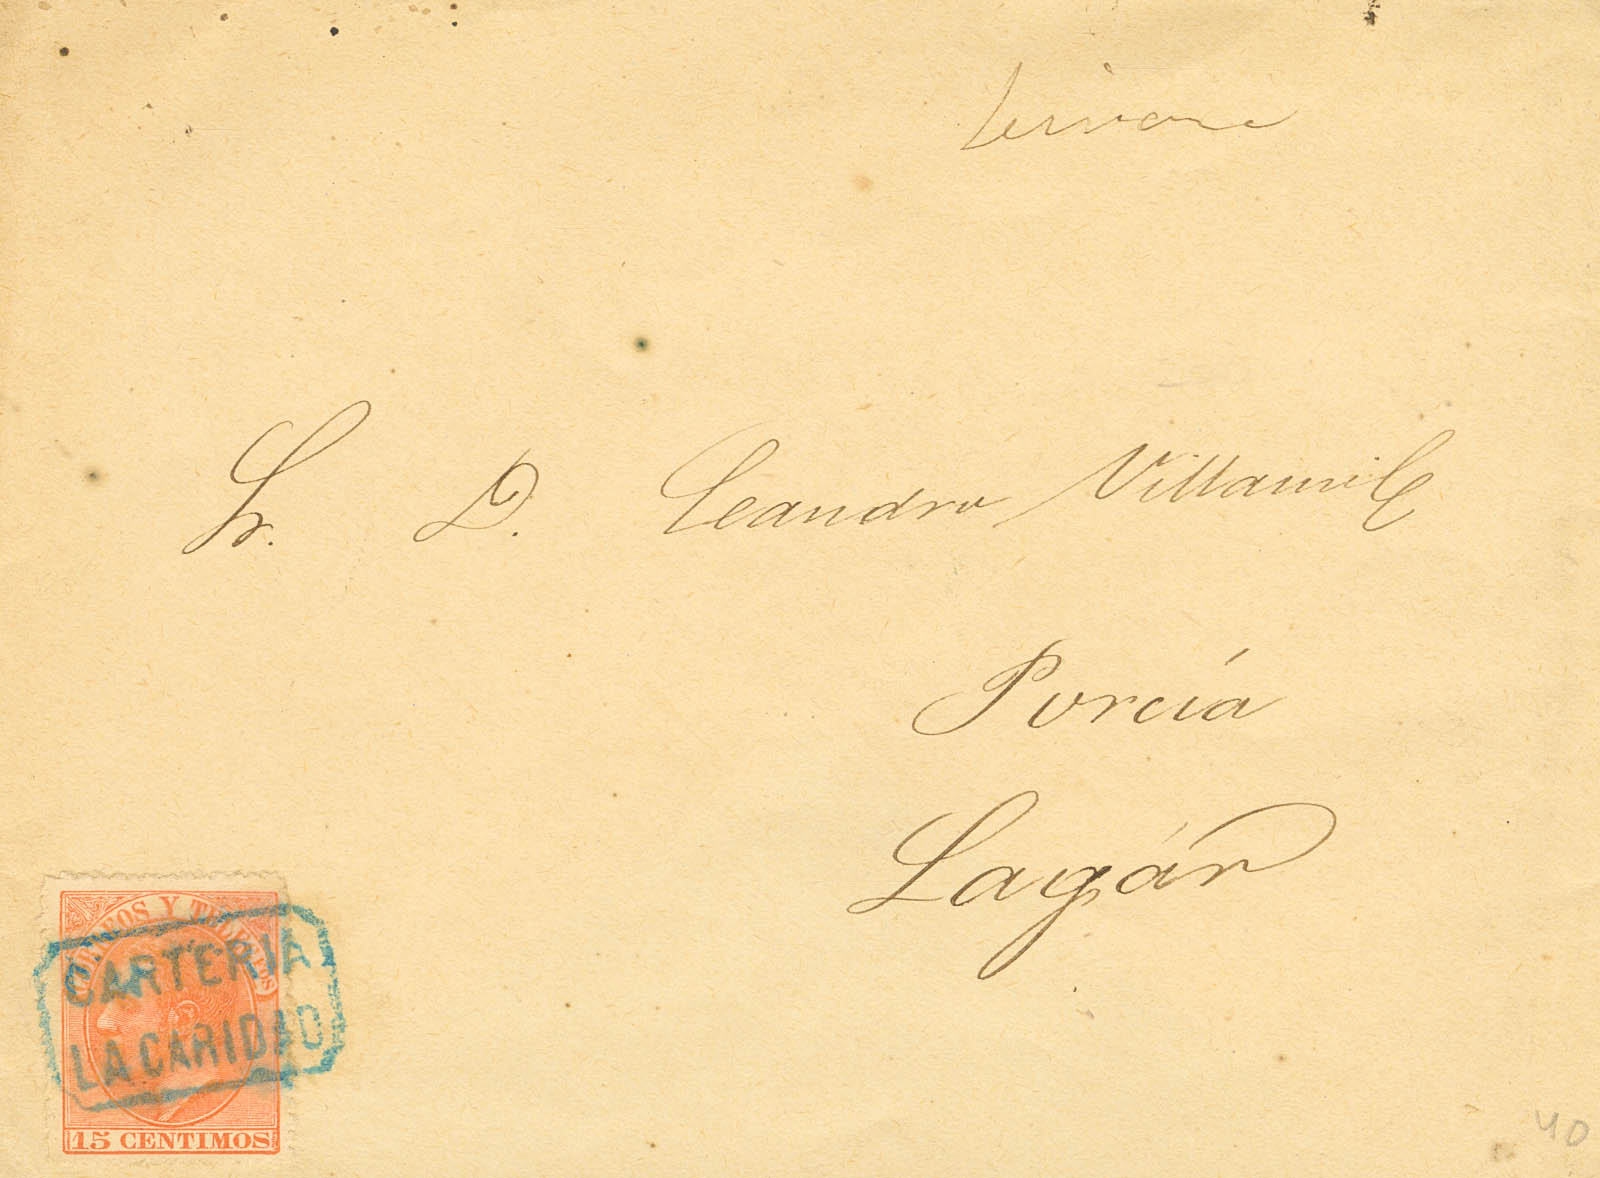 Sr. D. Leandro Villamil
Porcía
Lagár
CORREOS Y TELEGRAFOS
CARTERIA
LA CARIDAD
15 CENTIMOS
40